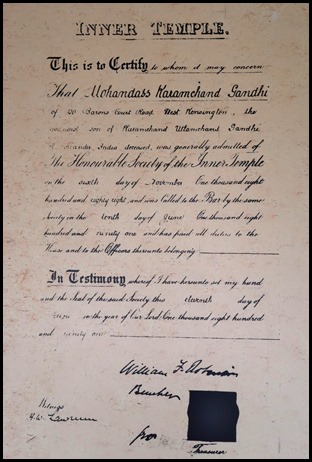 INNER TEMPLE.
This is to Certify to whom it may concern
That Mohandass Karamchand Gandhi
of 20 Barons Court Road West Kensington, the
second son of Karamchand Uttamchand Gandhi
of India deceased, was generally admitted of
The Honourable Society of the Inner Temple
on the sixth day of November One thousand eight
hundred and eighty eight, and was Called to the Bar by the same
Society on the tenth day of June One thousand eight
hundred and ninety one and has paid all duties to the
House and to the Officers thereunto belonging
In Testimony whereof I have hereunto set my hand
and the Seal of the said Society this eleventh day of
June in the year of Our Lord One thousand eight hundred
and ninety one
William F.
Bencher
Witness
H.W. Lawrence
for
Treasurer